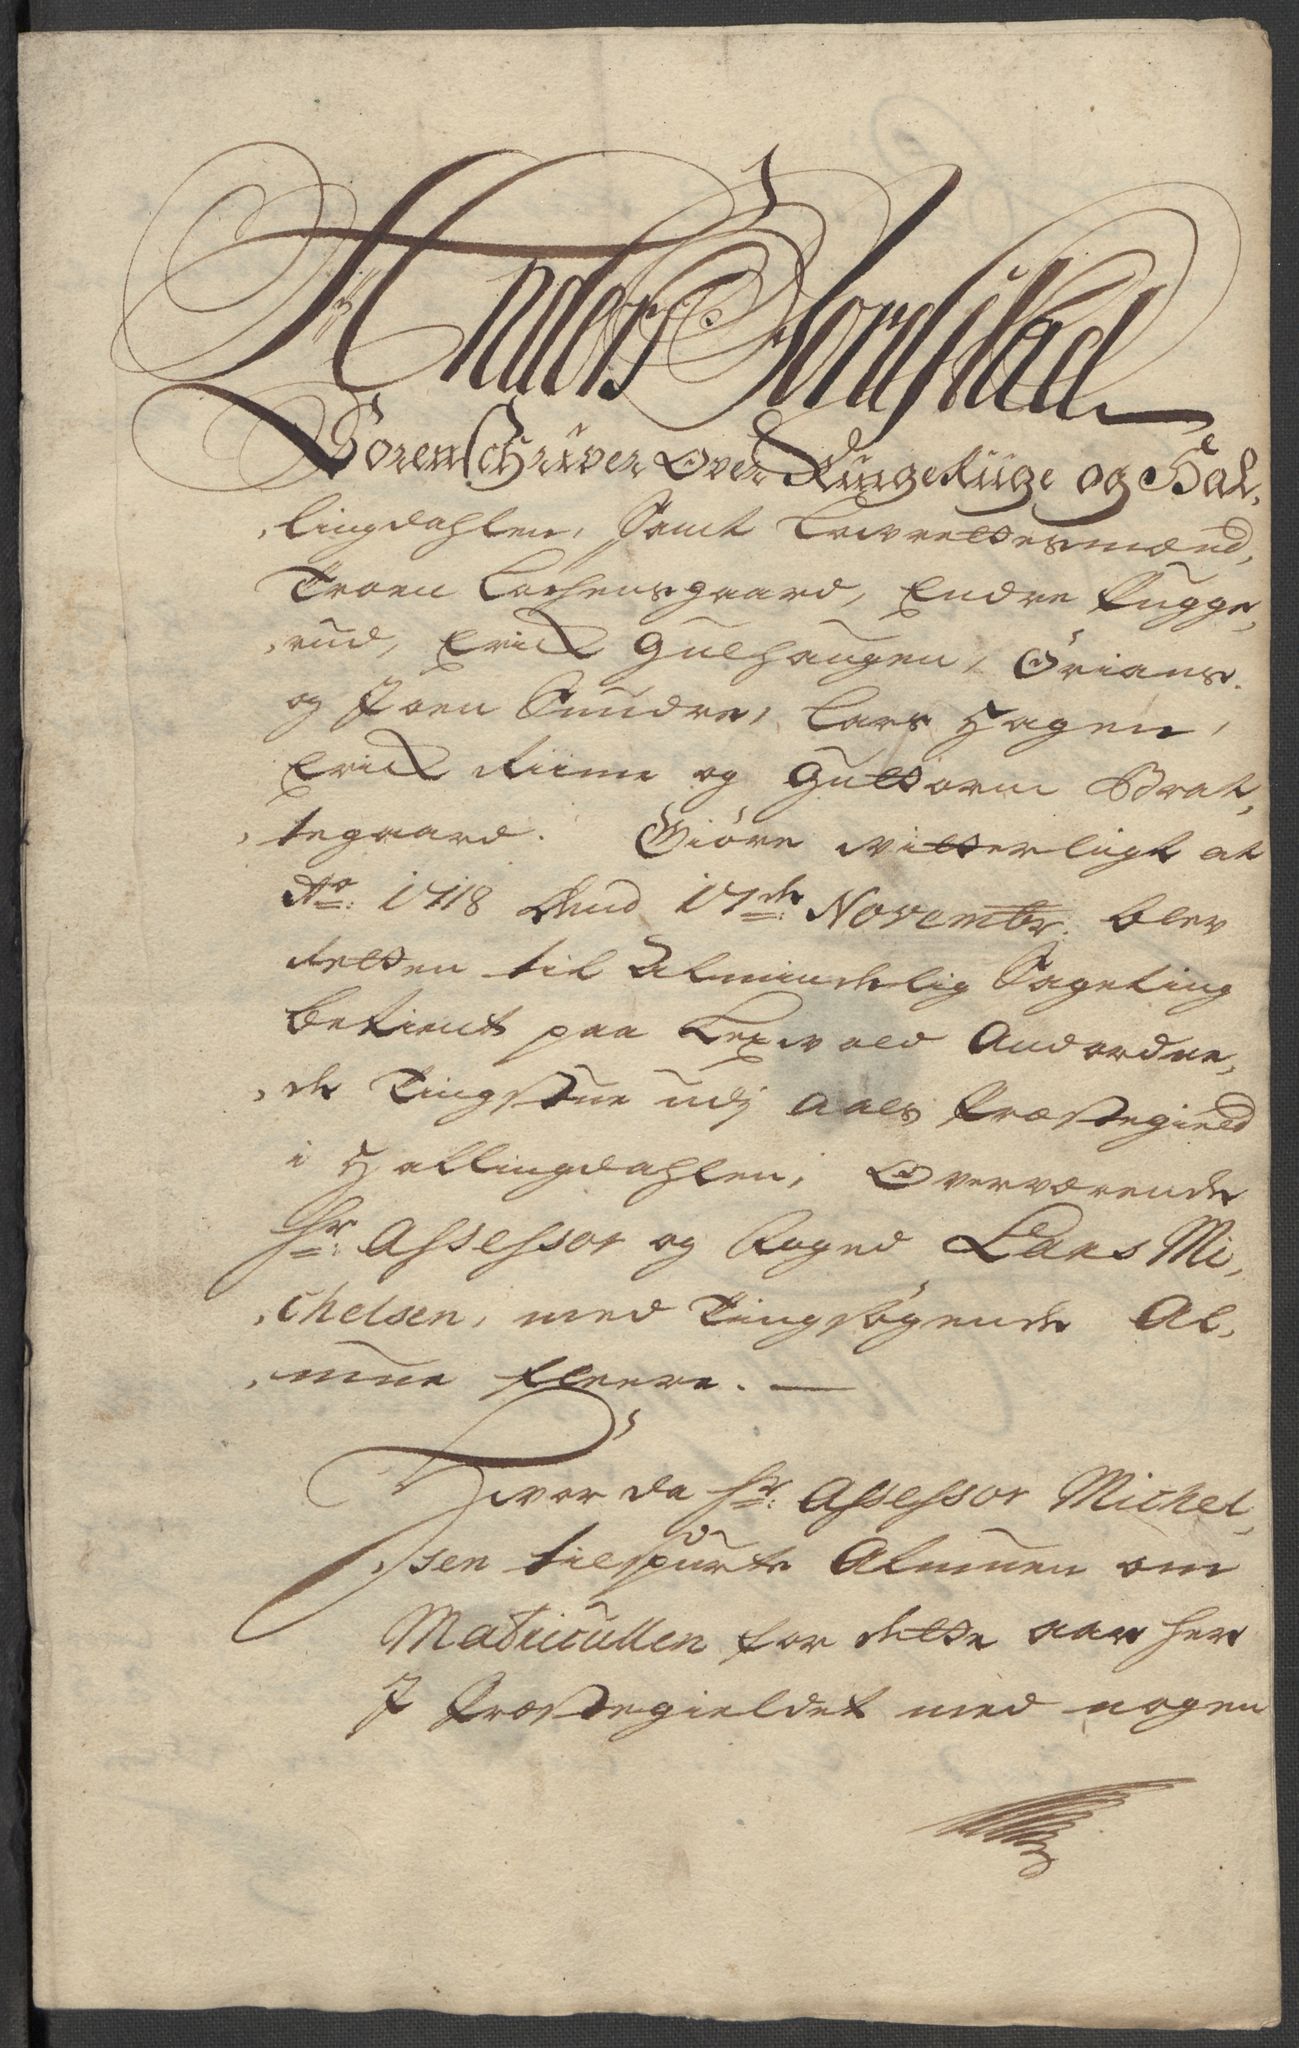 Anders Jordstad
Sorenschriver Over Ringerige og Hal,
,lingdahlen, Samt Laurettesmænd,
Troen Lochensgaard, Endre Rugge,
,rud, Erick Gulhaugen, Örians.
og Joen Sundre, Lars Hagen,
Erick Riime og Guttorm Brat,
,tegaard. Giöre witterligt at
Ao: 1718 dend 17de Novembr: blev
Retten til Almindelig Sageting
betient paa Lexvold Andordne,
,de Tingstue udj Aals Præstegield
i Hallingdahlen, Overværende
Hr: Assessor og Foged Lars Mi,
,chelsen, med Tingsögende Al,
,mue fleere. —
Hvor da Hr: Assessor Michel,
,sen tilspurte Almuen om
Matricullen for dette aar her
J Præstegieldet med nogen